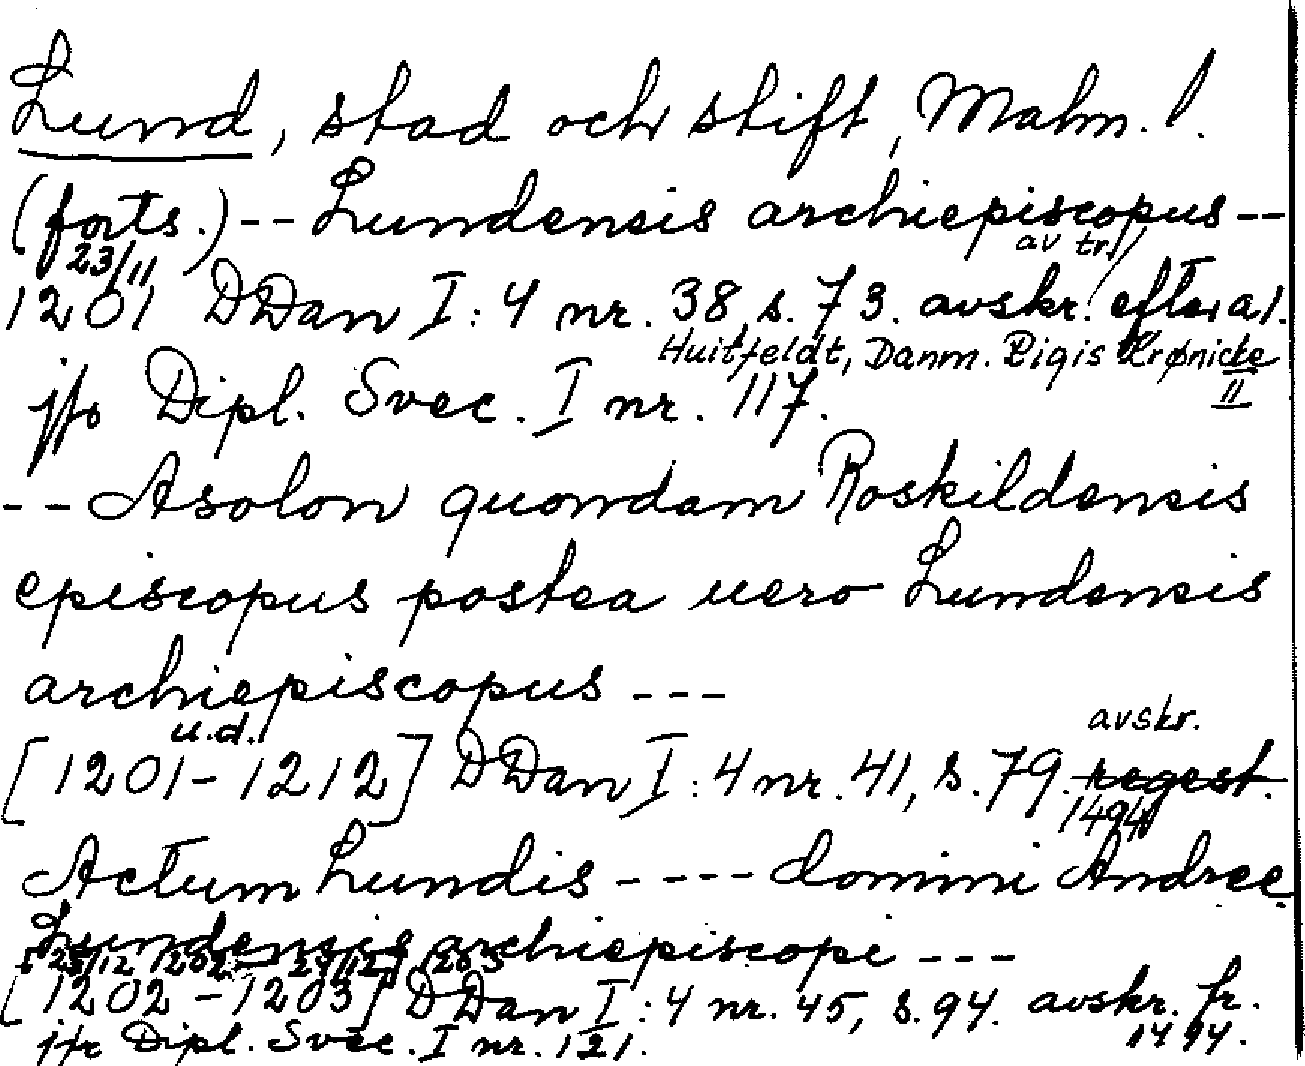 Lund, stad och stift, Malm. l.
(forts.) -- Lundensis archiepiscopus --
23/11 av tr.
1201 DDan I:4 nr. 38, s. 73. avskr. efter a l.
Huitfeldt, Danm. Rigis Krønicke II
jfr Dipl. Svec. I nr. 117.
-- Asolon quondam Roskildensis
episcopus postea uero Lundensis
archiepiscopus ---
u.d. avskr.
[1201-1212] DDan I:4 nr. 41, s. 79. regest.
1494
Actum Lundis ---- domini Andree
Lundensis archiepiscopi ---
[25/12 1202 - 24/12 1203
[1202-1203] DDan I:4 nr. 45, s. 94. avskr. fr.
jfr Dipl. Svec. I nr. 121. 1494.